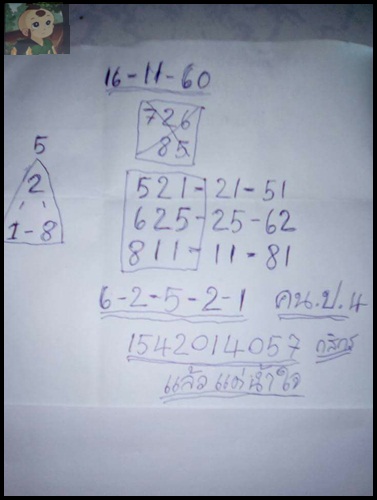 16-11-60
726
85
5
2
1-8
521-21-51
625-25-62
811-11-81
6-2-5-2-1 คน.ป.4
1542014057 กสิกร
แล้วแต่น้ำใจ